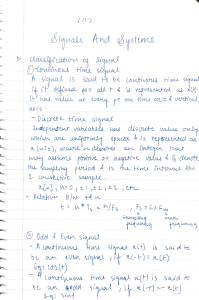 L02
Signals And Systems
Classification of signal
① Continuous time signal
A signal is said to be continuous time signal
if it defined for all t & is represented as x(t)
It has value at every pt on time axis & vertical
axis.
- Discrete time signal
Independent variables has discrete value only
which are uniformly spaced & is represented as
x(nTs), where n denotes an integer that
may assume positive or negative value & Ts denote
the sampling period & is the time interval b/w
2 consecutive sample.
x[n], n=0, ±1, ±2, ±3, etc
- Relation b/w t & n
t = n * Ts = n/Fs , Fs ≥ 2×Fm
sampling frequency
frequency
② Odd & Even signal
- A continuous time signal x(t) is said to
be an even signal, if x(-t) = x(t)
Eg: cos(t)
- A continuous time signal x(t) is said to
be an odd signal, if x(-t) = -x(t)
Eg: sint